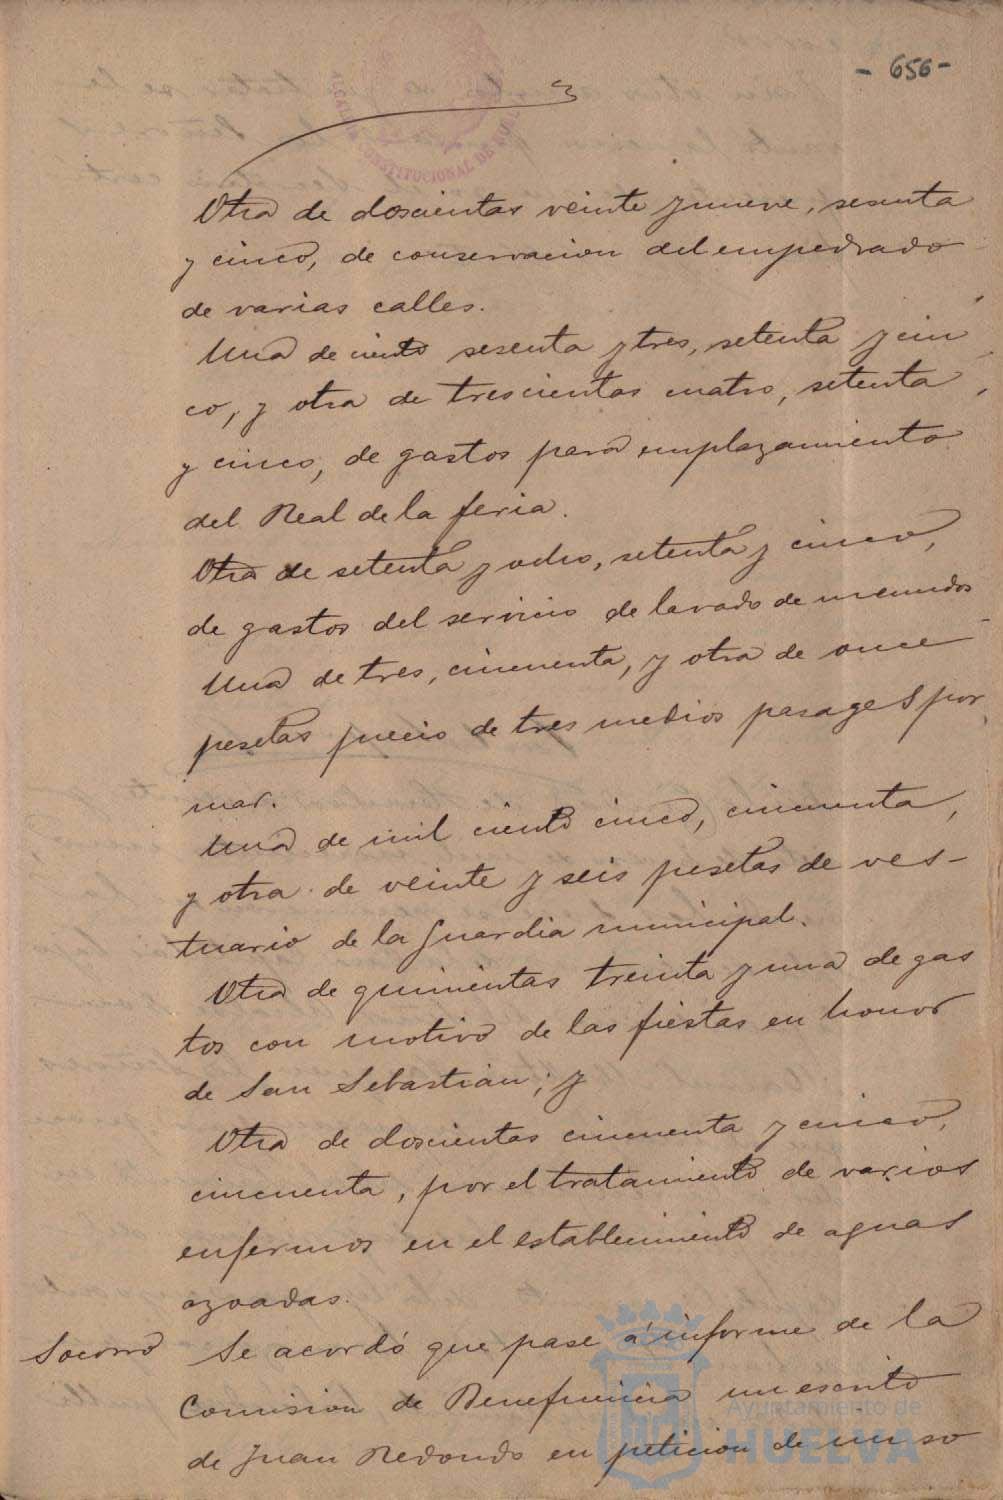 - 656 -
Otra de doscientas veinte y nueve, sesenta
y cinco, de conservacion del empedrado
de varias calles.
Una de ciento sesenta y tres, setenta y cin
co, y otra de trescientas cuatro, setenta
y cinco, de gastos para emplazamiento
del Real de la feria.
Otra de setenta y ocho, setenta y cinco,
de gastos del servicio de lavado de menudos
Una de tres, cincuenta, y otra de once
pesetas precio de tres medios pasages por
mar.
Una de mil ciento cinco, cincuenta,
y otra de veinte y seis pesetas de ves-
tuario de la Guardia municipal.
Otra de quinientas treinta y una de gas
tos con motivo de las fiestas en honor
de San Sebastián; y
Otra de doscientas cincuenta y cinco,
cincuenta, por el tratamiento de varios
enfermos en el establecimiento de aguas
azoadas.
Socorro Se acordó que pase á informe de la
Comision de Beneficencia un escrito
de Juan Redondo en peticion de un so
Ayuntamiento de
HUELVA